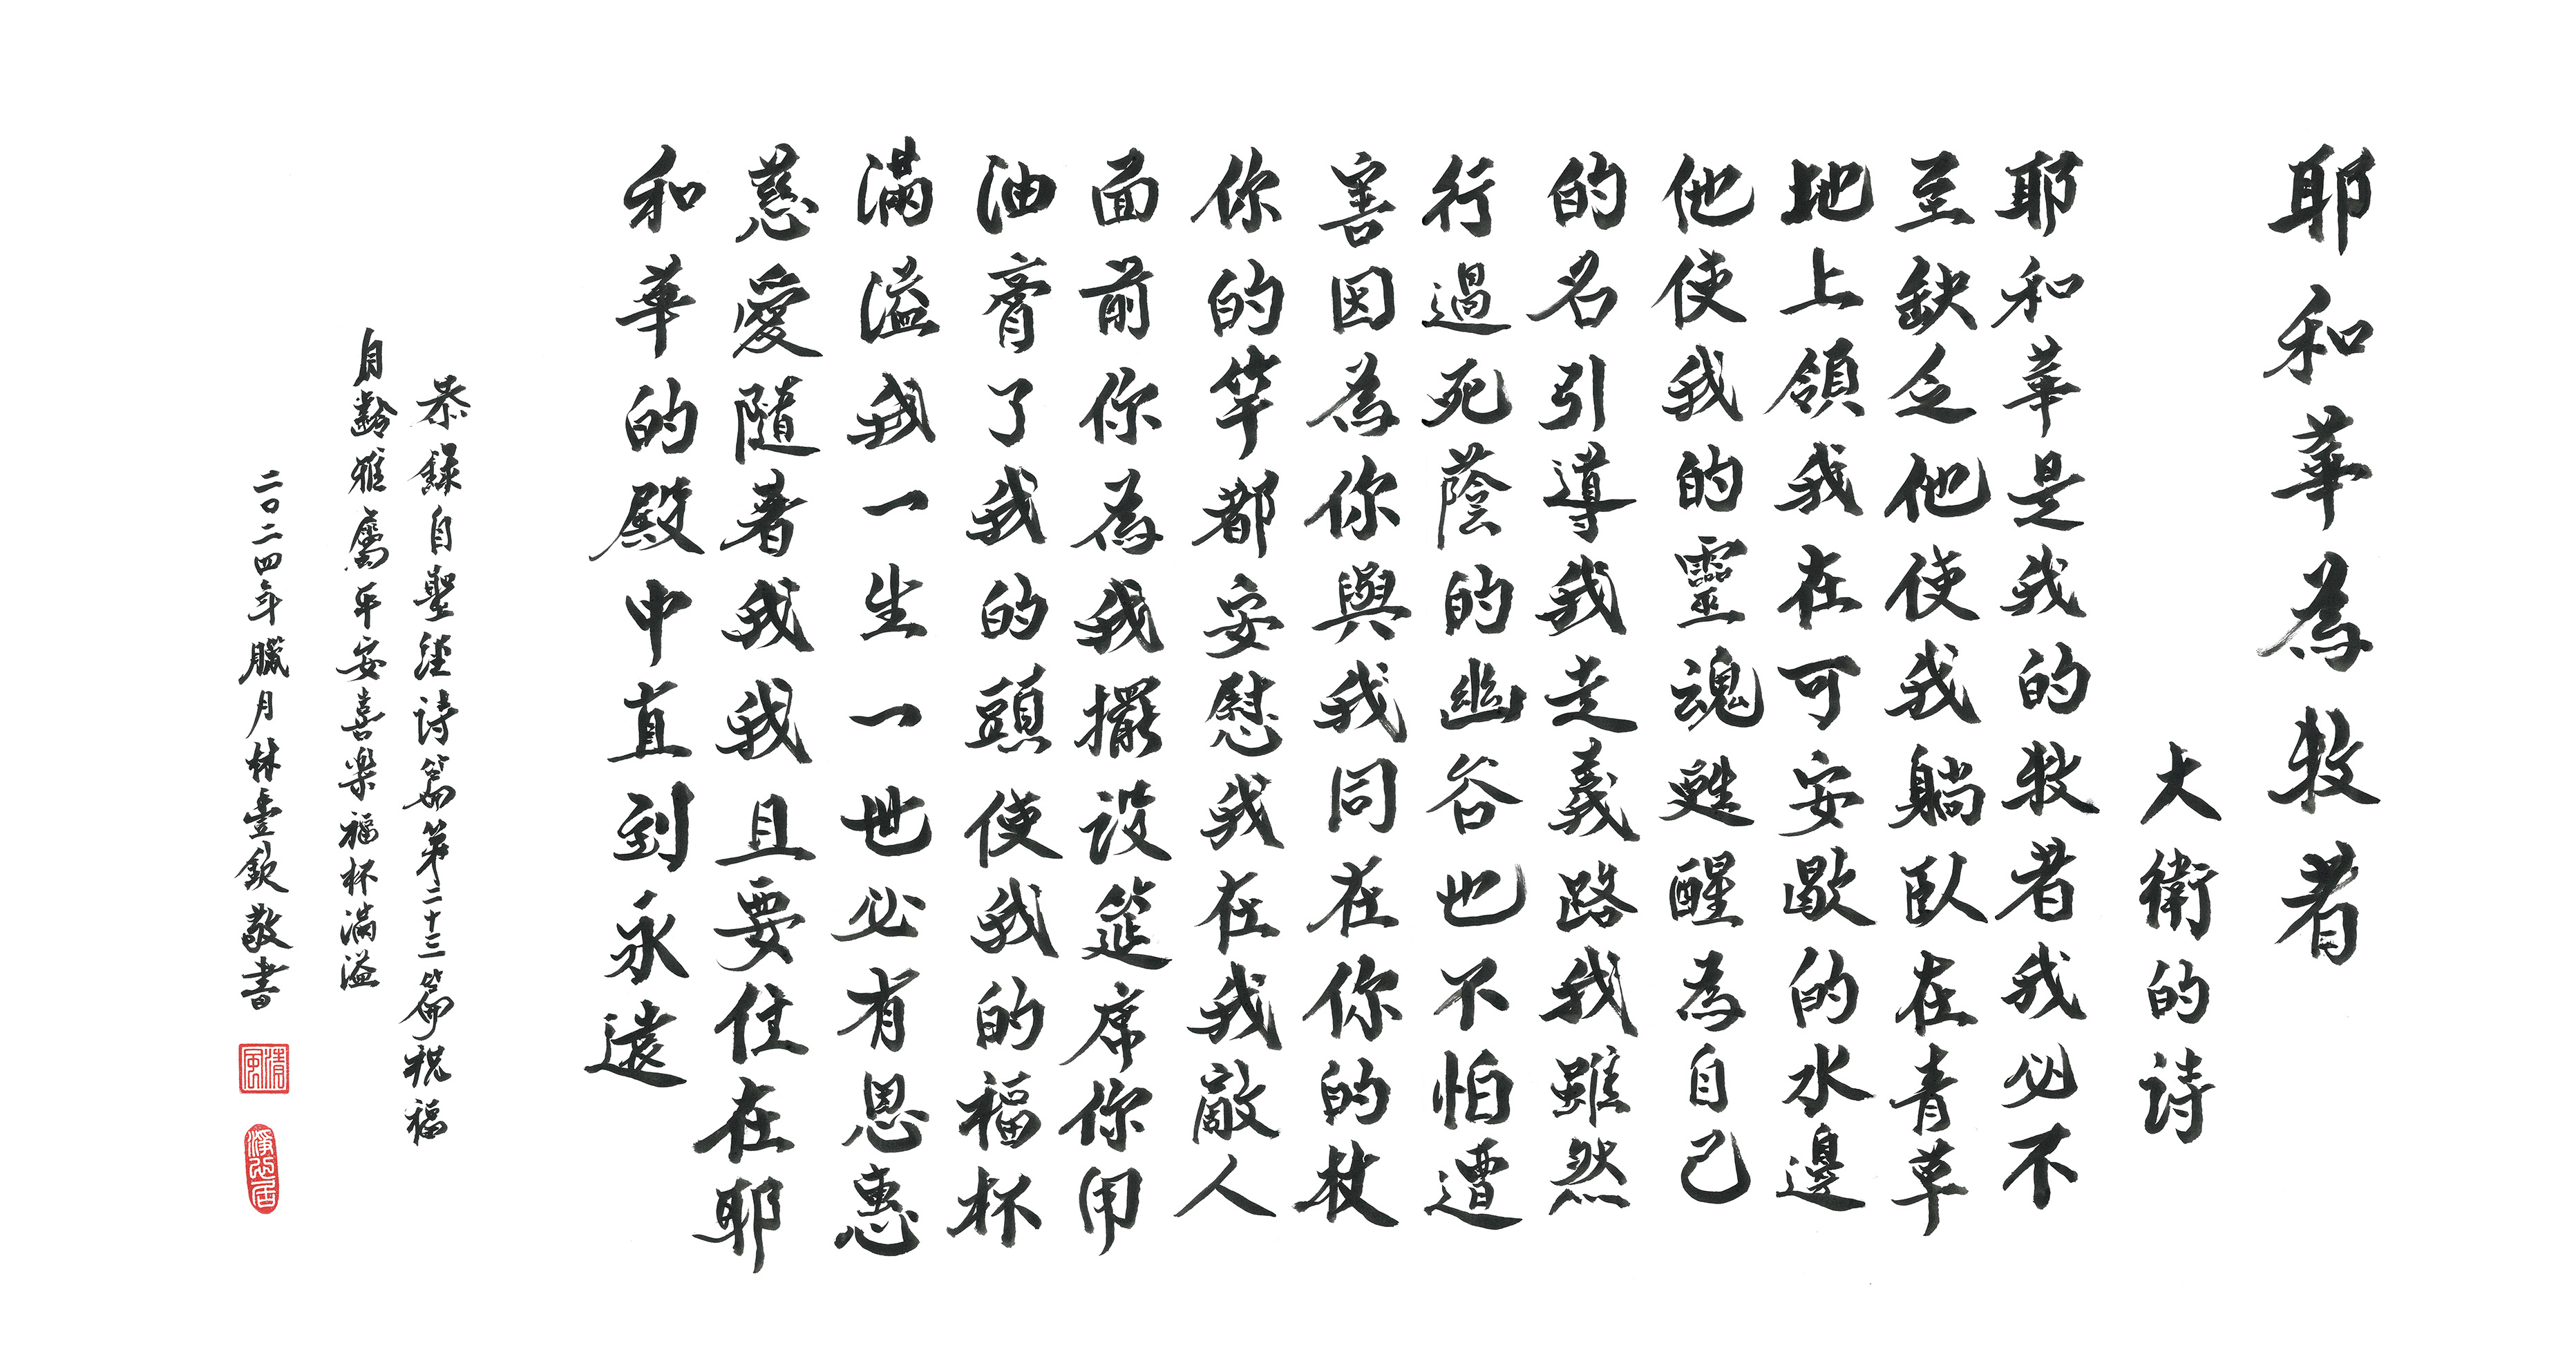 耶和華為牧者
大衛的詩
耶和華是我的牧者我必不
至缺乏他使我躺臥在青草
地上領我在可安歇的水邊
他使我的靈魂甦醒為自己
的名引導我走義路我雖然
行過死蔭的幽谷也不怕遭
害因為你與我同在你的杖
你的竿都安慰我在我敵人
面前你為我擺設筵席你用
油膏了我的頭使我的福杯
滿溢我一生一世必有恩惠
慈愛隨著我我且要住在耶
和華的殿中直到永遠
恭錄自聖經詩篇第二十三篇祝福
齡雅屬平安喜樂福杯滿溢
二〇二四年臘月林壹欽敬書
清風